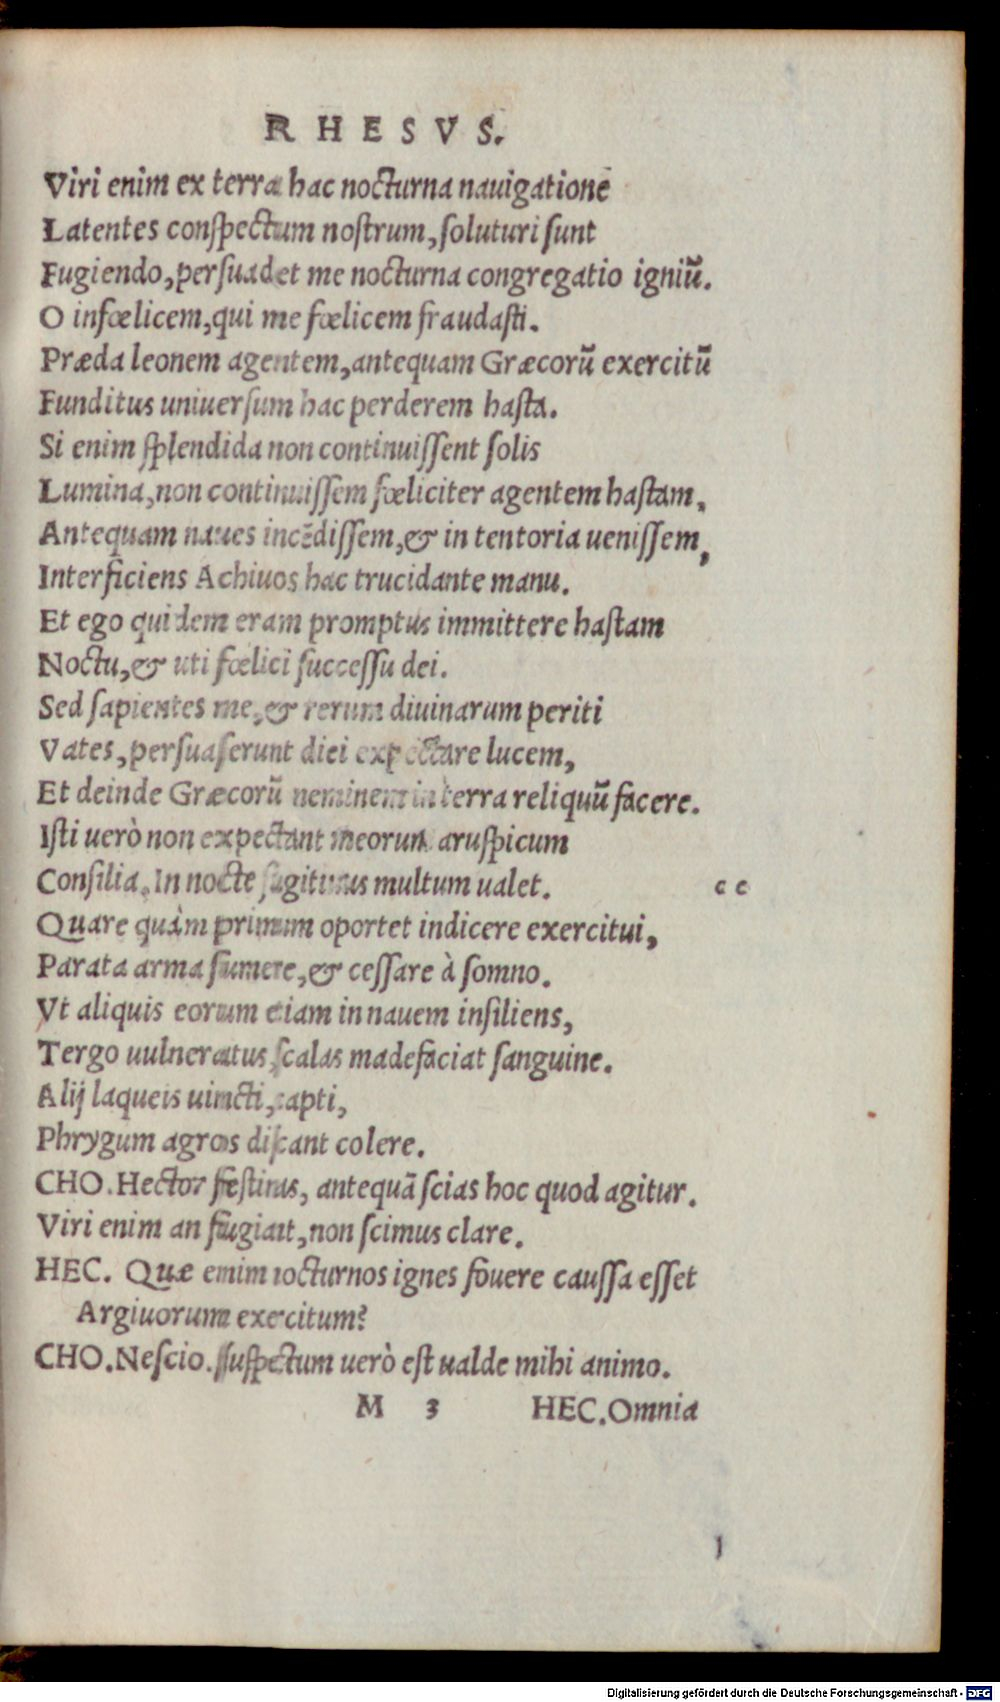 RHESVS.
Viri enim ex terra hac nocturna nauigatione
Latentes conspectum nostrum, soluturi sunt
Fugiendo, persuadet me nocturna congregatio igniũ.
O infœlicem, qui me fœlicem fraudasti.
Præda leonem agentem, antequam Græcorũ exercitũ
Funditus uniuersum hac perderem hasta.
Si enim splendida non continuissent solis
Lumina, non continuissem fœliciter agentem hastam,
Antequam naues incẽdissem, & in tentoria uenissem,
Interficiens Achiuos hac trucidante manu.
Et ego quidem eram promptus immittere hastam
Noctu, & uti fœlici successu dei.
Sed sapientes me, & rerum diuinarum periti
Vates, persuaserunt diei expectare lucem,
Et deinde Græcorũ neminem in terra reliquũ facere.
Isti uerò non expectant meorum aruspicum
Consilia. In nocte fugitiuus multum ualet.
c c
Quare quàm primum oportet indicere exercitui,
Parata arma sumere, & cessare à somno.
Vt aliquis eorum etiam in nauem insiliens,
Tergo uulneratus, scalas madefaciat sanguine.
Alij laqueis uincti, capti,
Phrygum agros discant colere.
CHO. Hector festinas, antequã scias hoc quod agitur.
Viri enim an fugiant, non scimus clare.
HEC. Quæ enim nocturnos ignes fouere caussa esset
Argiuorum exercitum?
CHO. Nescio. suspectum uerò est ualde mihi animo.
M 3 HEC. Omnia
Digitalisierung gefördert durch die Deutsche Forschungsgemeinschaft - DFG